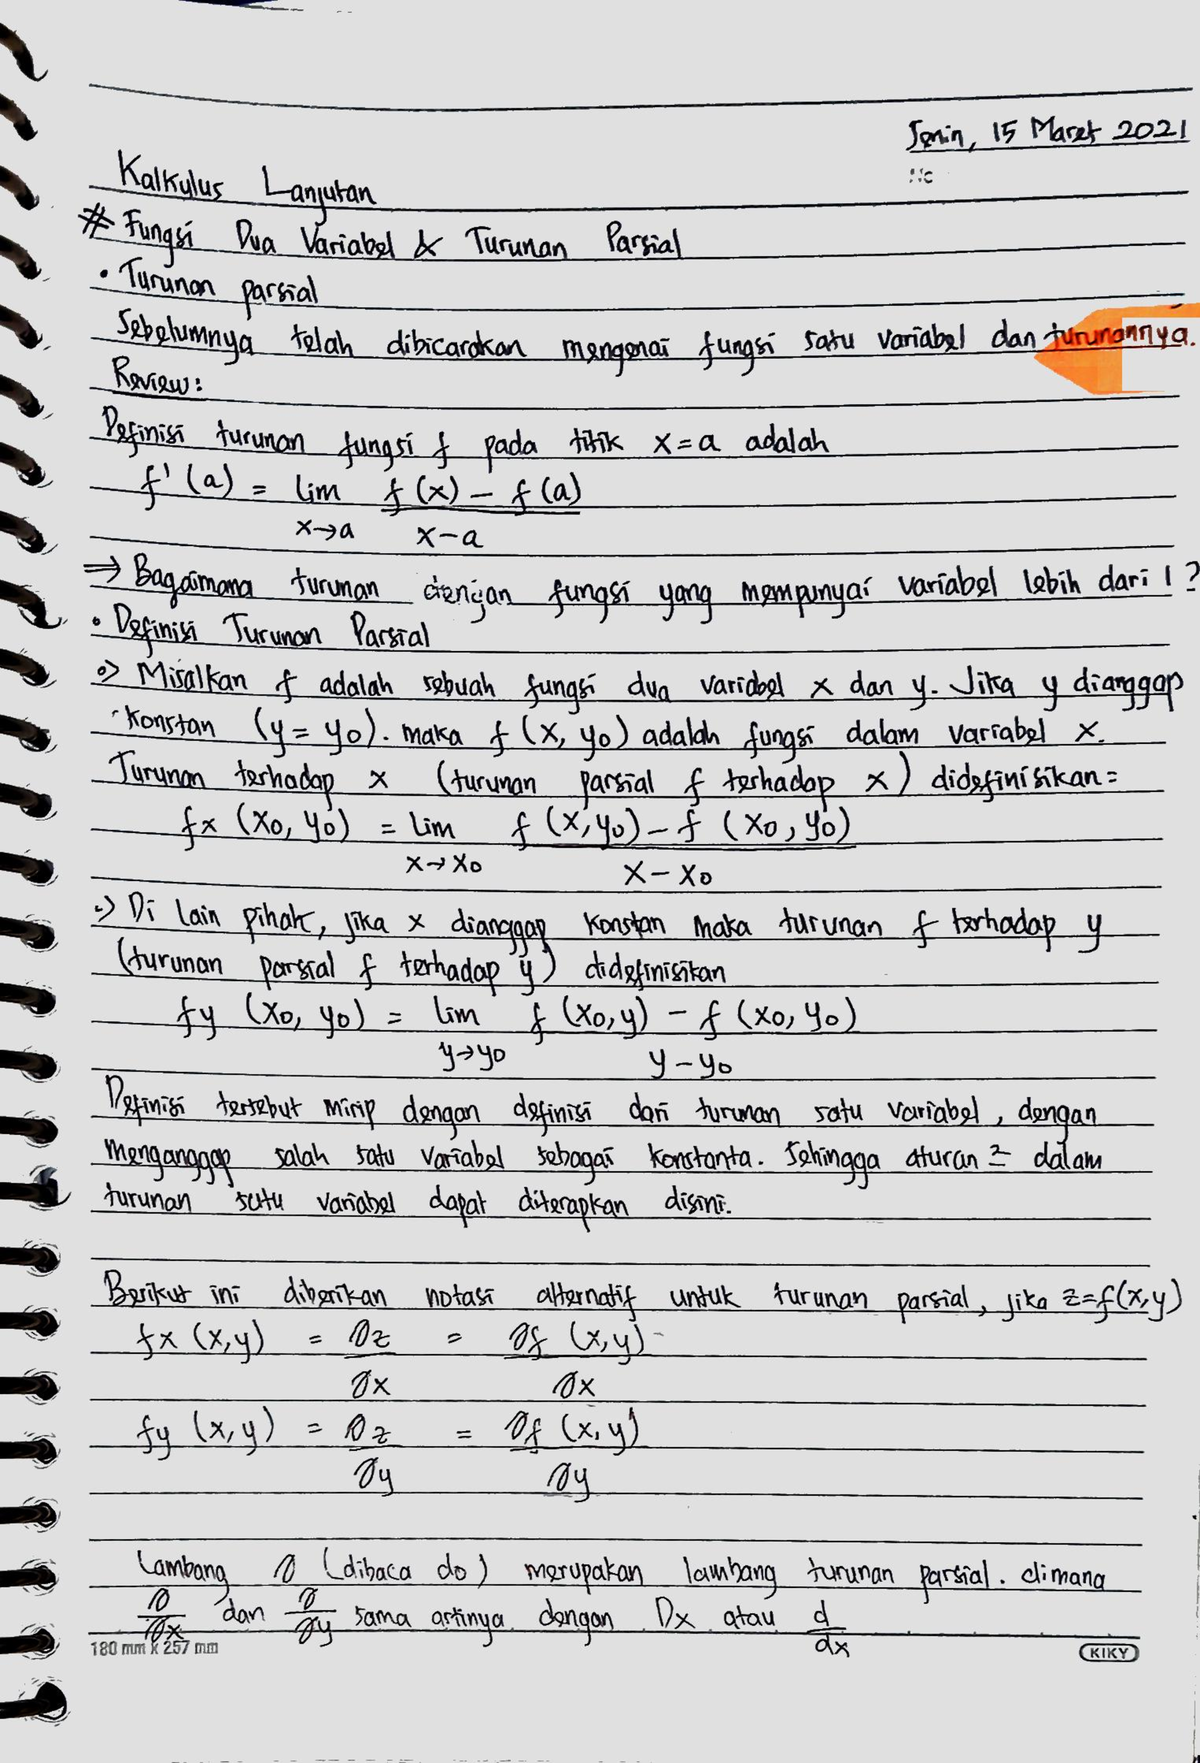 Senin, 15 Maret 2021
No
Kalkulus Lanjutan
# Fungsi Dua Variabel & Turunan Parsial
• Turunan parsial
Sebelumnya telah dibicarakan mengenai fungsi satu variabel dan turunannya.
Review:
Definisi turunan fungsi f pada titik x=a adalah
f'(a) = lim f(x) – f(a)
x→a x–a
⇒ Bagaimana turunan dengan fungsi yang mempunyai variabel lebih dari 1?
• Definisi Turunan Parsial
•> Misalkan f adalah sebuah fungsi dua variabel x dan y. Jika y dianggap
konstan (y = y0). maka f (x, y0) adalah fungsi dalam variabel x.
Turunan terhadap x (turunan parsial f terhadap x) didefinisikan =
fx (x0, y0) = lim f (x, y0) – f (x0, y0)
x→x0 x – x0
•> Di lain pihak, jika x dianggap konstan maka turunan f terhadap y
(turunan parsial f terhadap y) didefinisikan
fy (x0, y0) = lim f (x0, y) – f (x0, y0)
y→y0 y – y0
Definisi tersebut mirip dengan definisi dari turunan satu variabel, dengan
menganggap salah satu variabel sebagai konstanta. Sehingga aturan 2 dalam
turunan satu variabel dapat diterapkan disini.
Berikut ini diberikan notasi alternatif untuk turunan parsial, jika z=f(x,y)
fx (x,y) = ∂z = ∂f (x,y)
∂x ∂x
fy (x,y) = ∂z = ∂f (x,y)
∂y ∂y
Lambang ∂ (dibaca do) merupakan lambang turunan parsial. dimana
∂ dan ∂ sama artinya dengan Dx atau d
∂x ∂y dx
180 mm x 257 mm KIKY